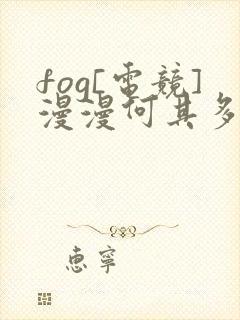 fog[電競]
漫漫何其多
惠寧